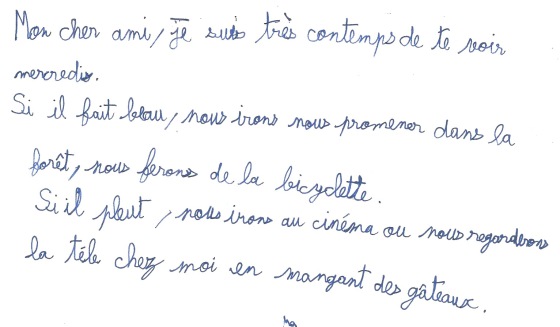 Mon cher ami, je suis très contemps de te voir
mercredis.
Si il fait beau, nous irons nous promener dans la
forêt, nous ferons de la bicyclette.
Si il pleut, nous irons au cinéma ou nous regarderons
la télé chez moi en mangant des gâteaux.